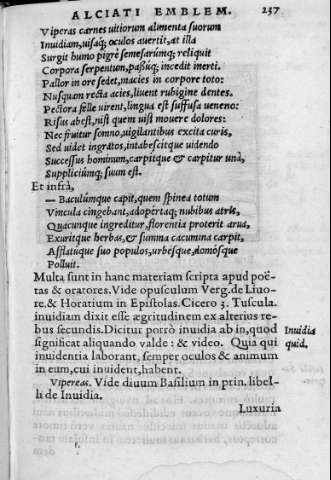 ALCIATI EMBLEM. 237
Viperas carnes uitiorum alimenta suorum
Inuidiam, uisaq; oculos auertit, at illa
Surgit humo pigrè semesarúmq; reliquit
Corpora serpentum, passuq; incedit inerti.
Pallor in ore sedet, macies in corpore toto:
Nusquam recta acies, liuent rubigine dentes.
Pectora felle uirent, lingua est suffusa ueneno:
Risus abest, nisi quem uisi mouere dolores:
Nec fruitur somno, uigilantibus excita curis,
Sed uidet ingratos, intabescitque uidendo
Successus hominum, carpitque & carpitur unà,
Suppliciúmq; suum est.
Et infrà,
— Baculúmque capit, quem spinea totum
Vincula cingebant, adopertaq; nubibus atris,
Quacunque ingreditur, florentia proterit arua,
Exuritque herbas, & summa cacumina carpit,
Afflatúque suo populos, urbesque, domósque
Polluit.
Multa sunt in hanc materiam scripta apud poë-
tas & oratores. Vide opusculum Verg. de Liuo-
re. & Horatium in Epistolas. Cicero 3. Tuscula.
inuidiam dixit esse ægritudinem ex alterius re-
bus secundis. Dicitur porrò inuidia ab in, quod
significat aliquando valde: & video. Quia qui
inuidentia laborant, semper oculos & animum
in eum, cui inuident, habent.
Inuidia
quid.
Vipereas. Vide diuum Basilium in prin. libel-
li de Inuidia.
Luxuria